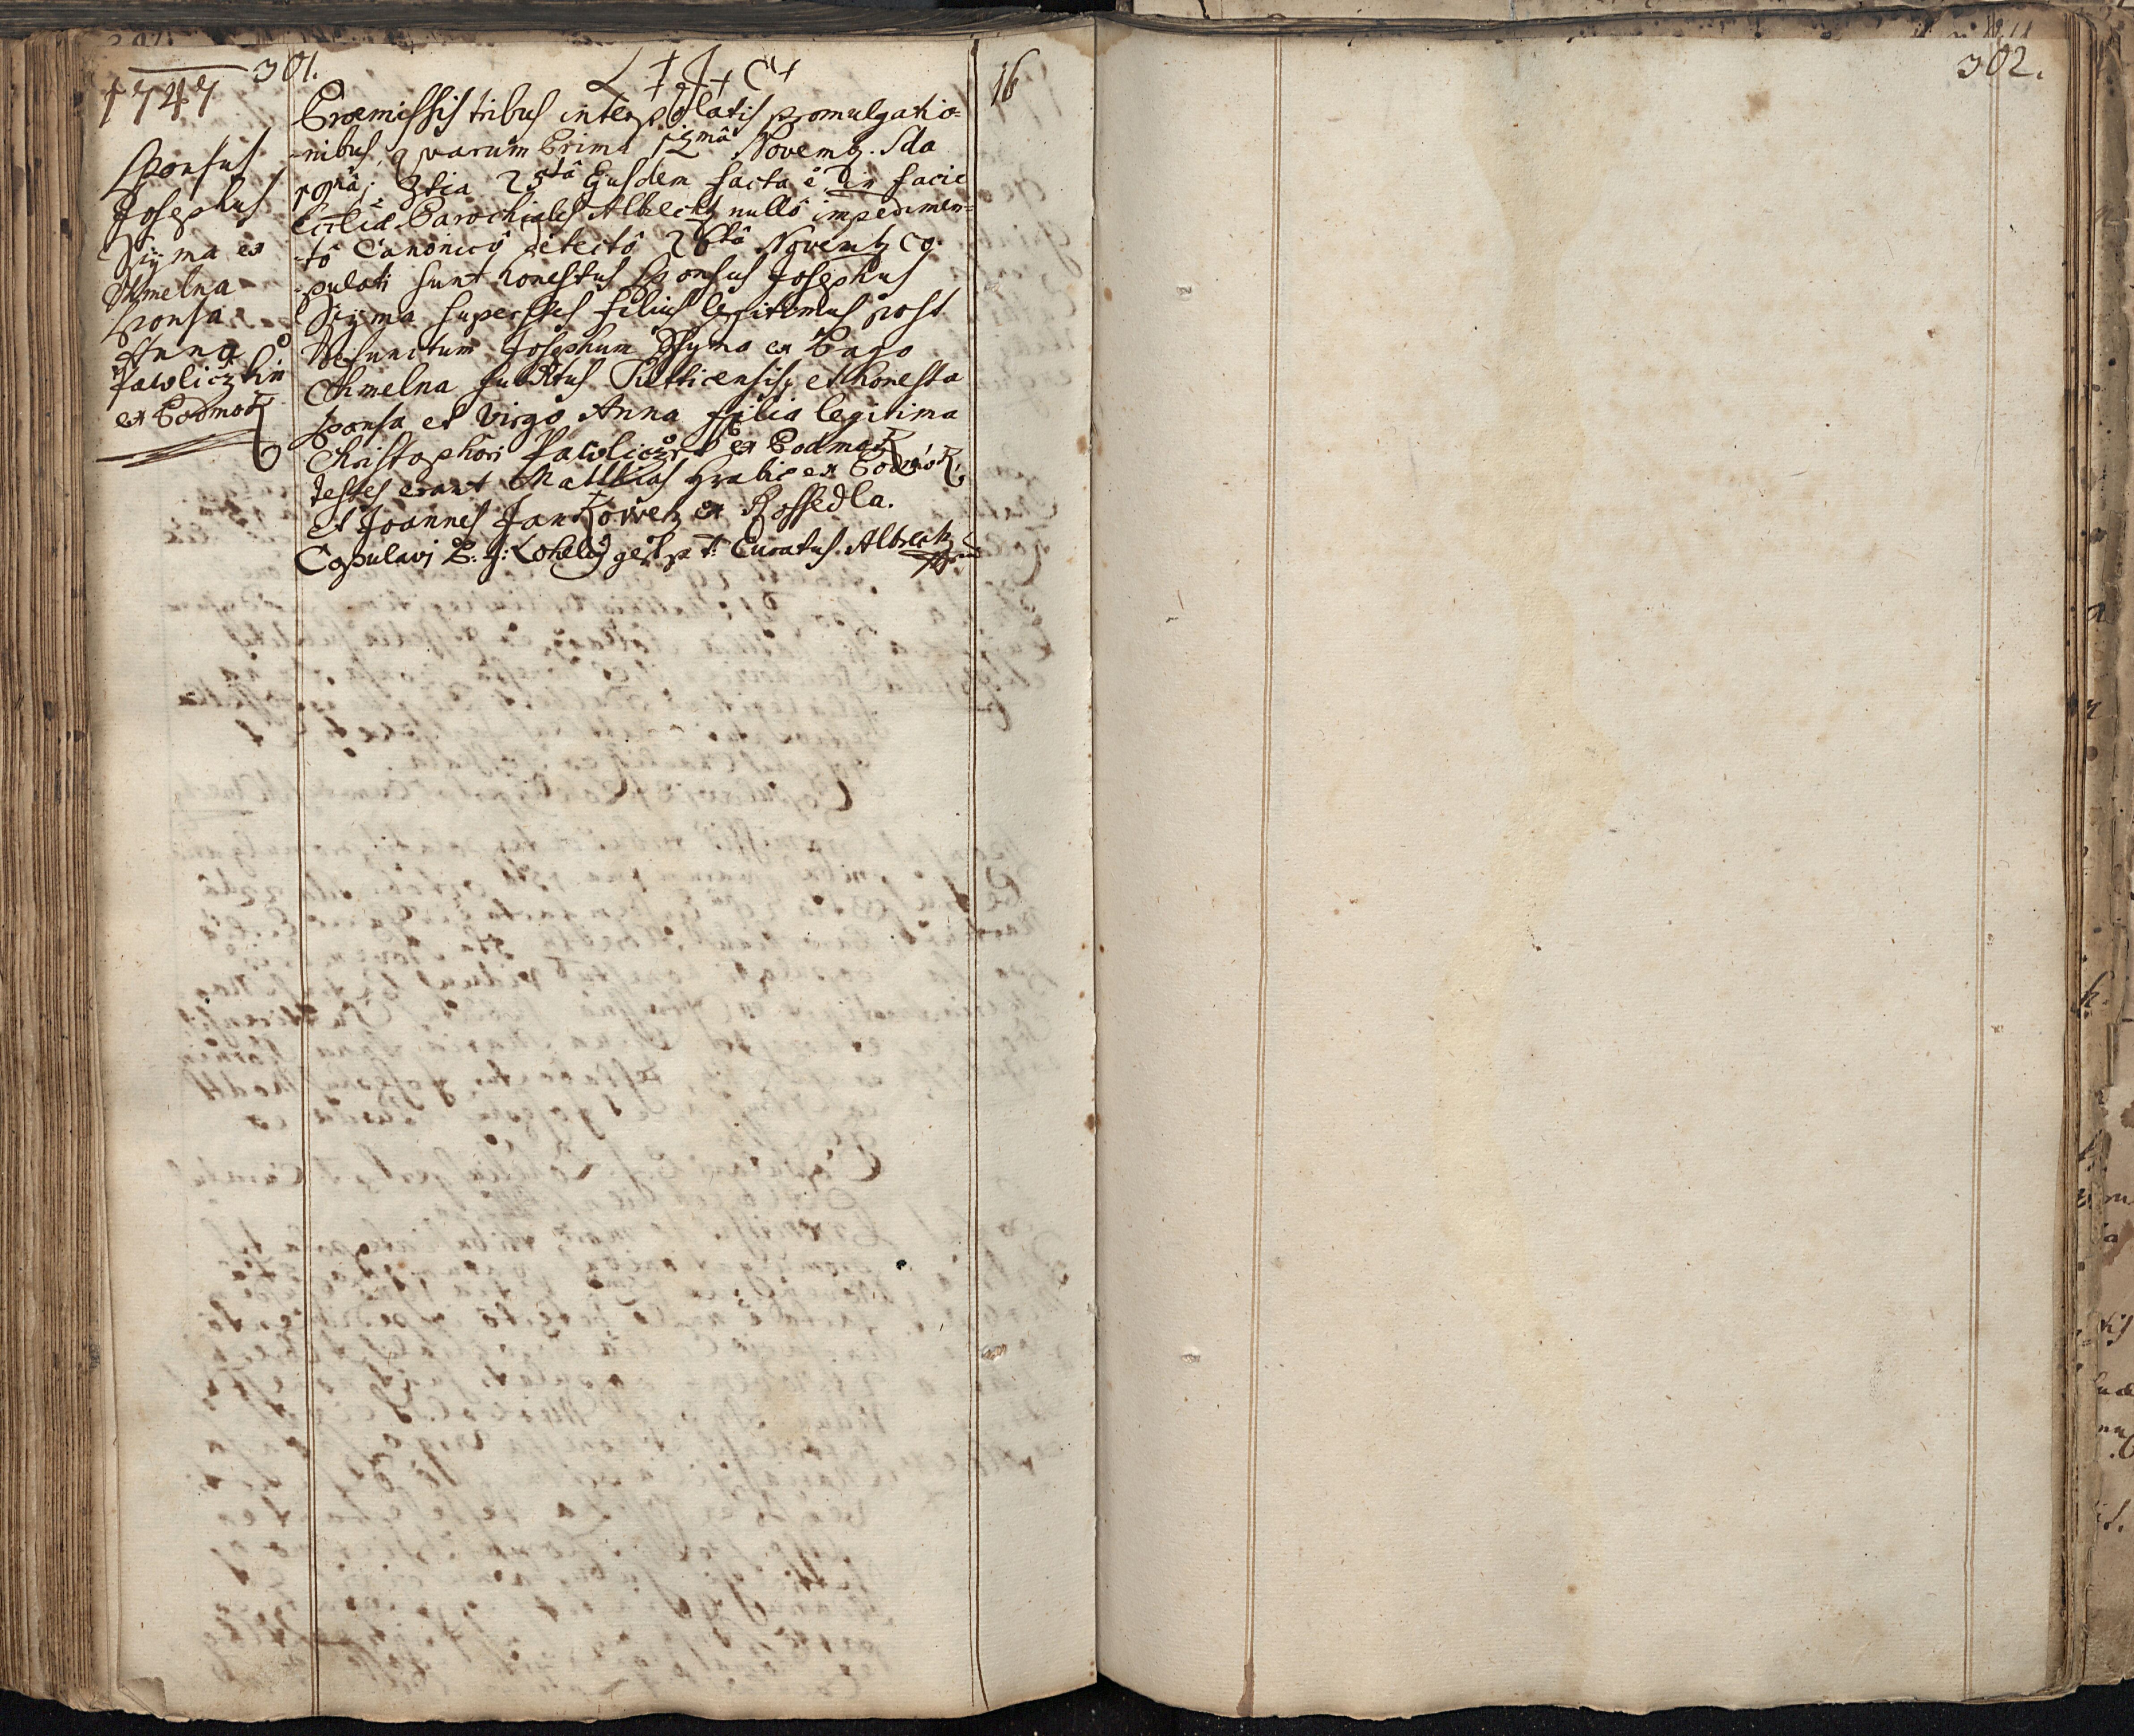 301.
1747
L + J + C +
16
Sponsus
Josephus
Ssyma ex
Chmelna
Sponsa
Anna
Pawliczkin
ex Podmok
Præmissis tribus interpolatis promulgatio=
nibus, quarum Prima 12mâ Novemb. Sda
19nâ; 3tia 25tâ Ejusdem facta ê in facie
Eccliæ Parochialis Albrechz nullô impedimen=
tô Canonicô detectô 26tâ Novemb co=
pulati sunt honestus Sponsus Josephus
Ssyma superstes filius legitimus post
Defunctum Josephum Ssyma ex Pago
Chmelna subditus Sutticensis, et honesta
sponsa et Virgo Anna filia legitima
Christophori Pawliczek ex Podmok
testes erant Matthias Hrabie ex Podmok,
et Joannes Jankowetz ex Rossedla.
Copulavi P. J: Lohelig p t: Curatus Albrechz
302.